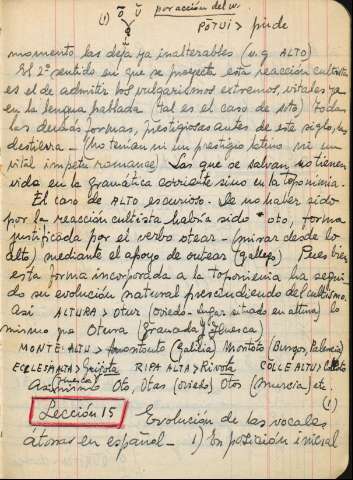 (1) Ŏ Ŭ por acción del w.
Q PŎTUĪ > pude
momento las deja ya inalterables (v.g ALTO)
El 2º sentido en que se proyecta esta reacción cultista
es el de admitir los vulgarismos extremos, vitales ya
en la lengua hablada (tal es el caso de oto) todas
las demás formas, prestigiosas antes de este siglo, las
destierra - (No tenían ni un prestigio latino ni un
vital ímpetu romance) Las que se salvan, no tienen
vida en la gramática corriente sino en la toponimia.
El caso de ALTO es curioso. De no haber sido
por la reacción cultista habría sido * oto, forma
justificada por el verbo otear - (mirar desde lo
alto) mediante el apoyo de outear (gallego) Pues bien
esta forma incorporada a la Toponimia ha segui-
do su evolución natural prescindiendo del cultismo.
Así ALTURA > Otur (Oviedo - lugar situado en altura) lo
mismo que Otura (Granada y Huesca)
MONTE-ALTU > Montouto (Galicia) Montoto (Burgos, Palencia)
ECCLESIA ALTA > Grijota RIPA ALTA > Rivota COLLE ALTU >
Asimismo Oto, Otas (Oviedo) Otos (Murcia) etc.
Lección 15 Evolución de las vocales (1)
átonas en español - 1) En posición inicial